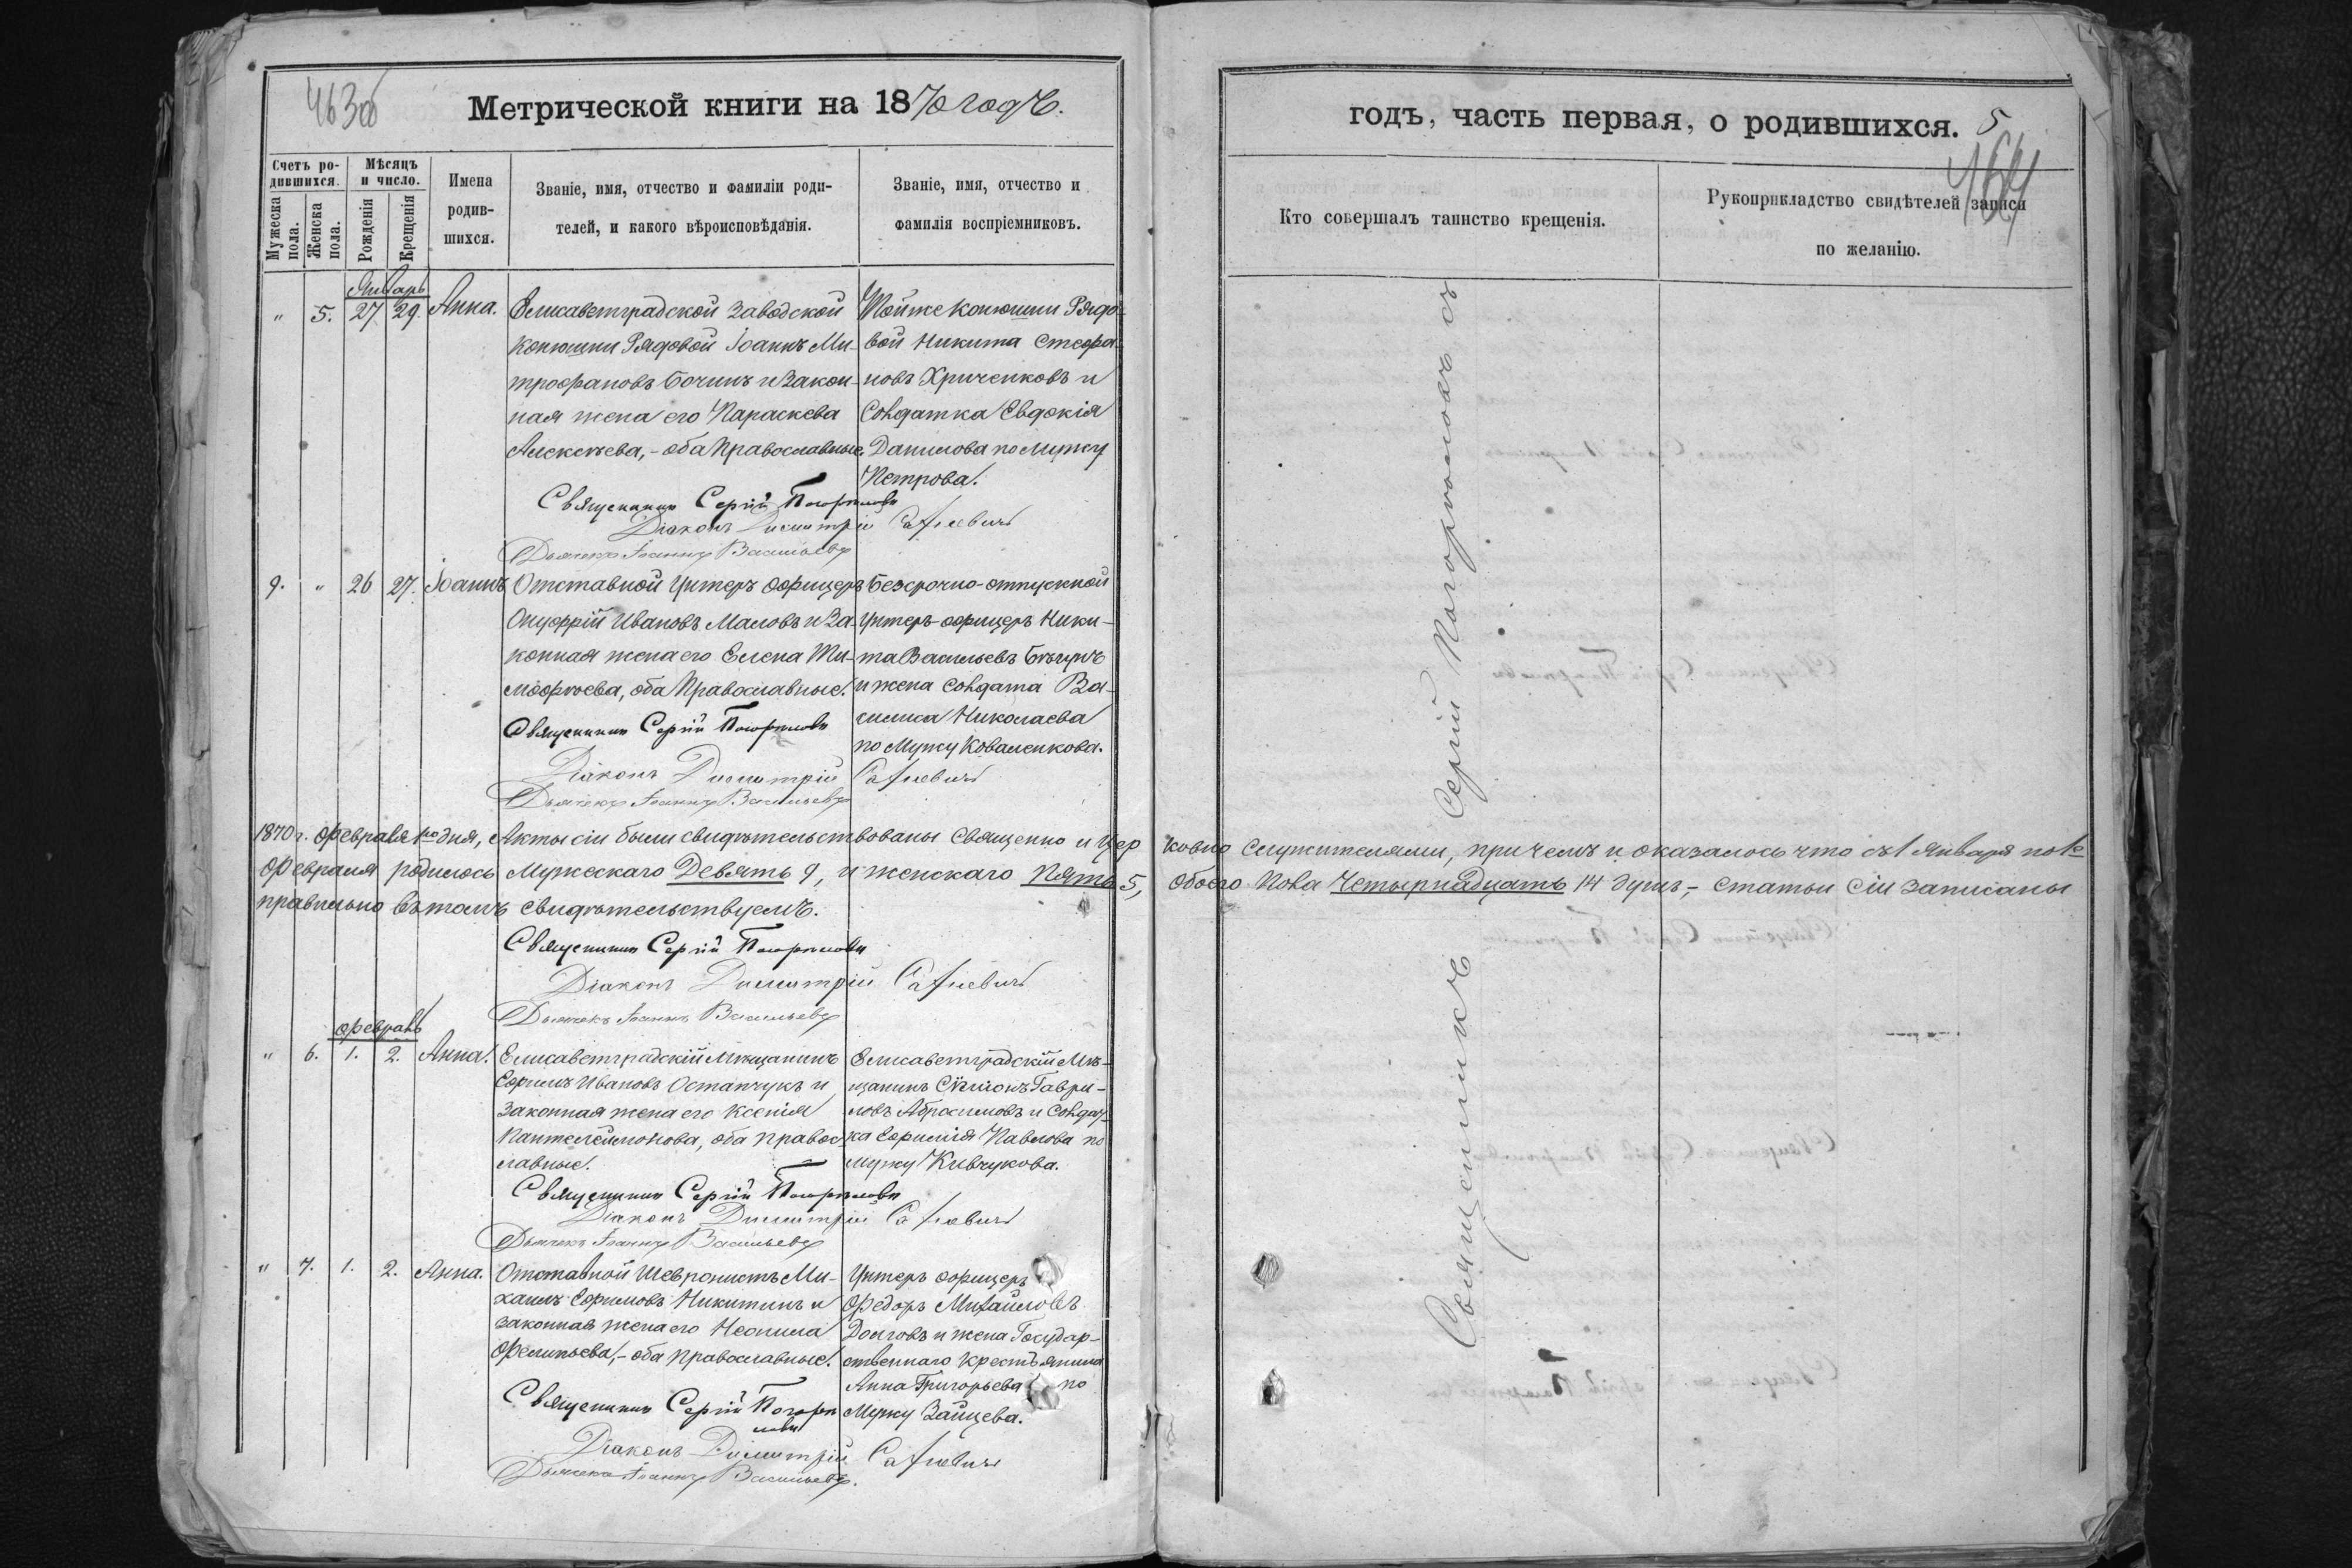 463об
Метрической книги на 1870 годъ.
Счетъ ро-
дившихся.
Мѣсяцъ
и число.
Мужеска
пола.
Женска
пола.
Рожденія
Крещенія
Имена
родив-
шихся.
Званіе, имя, отчество и фамиліи роди-
телей, и какого вѣроисповѣданія.
Званіе, имя, отчество и
фамилія воспріемниковъ.
Январь
" 5. 27 29. Анна.
Елисаветградской Заводской
конюшни Рядовой Іоаннъ Ми-
трофановъ Бочинъ и Закон-
ная жена его Параскева
Алексѣева, - оба Православные,
Тойже Конюшни Рядо-
вой Никита Стефа-
новъ Хриченковъ и
Солдатка Евдокія
Данилова по мужу
Петрова.
Священникъ Сергій Погориловъ
Діаконъ Димитрій
Дьячекъ Іоаннъ Васильевъ
9. " 26 27. Іоаннъ
Отставной Унтеръ офицеръ
Онуфрій Ивановъ Маловъ и За-
конная жена его Елена Ти-
мофѣева, оба Православные.
Безсрочно-отпускной
Унтеръ-офицеръ Ники-
та Васильевъ Бѣгунъ
и жена солдата Ва-
силиса Николаева
по мужу Коваленкова.
Священникъ Сергій Погориловъ
Діаконъ Димитрій
Дьячекъ Іоаннъ Васильевъ
1870 г. Февраля 1го дня, Акты сіи были свидѣтельствованы Священно и Цер
Февраля родилось Мужескаго Девять 9, и женскаго Пять 5,
правильно въ томъ свидѣтельствуемъ.
Священникъ Сергій Погориловъ
Діаконъ Димитрій
Дьячекъ Іоаннъ Васильевъ
Февраль
" 6. 1. 2. Анна.
Елисаветградскій Мѣщанинъ
Ефимъ Ивановъ Остапчукъ и
Законная жена его Ксенія
Пантелеймонова, оба правос-
лавные.
Елисаветградскій Мѣ-
щанинъ Сѵмеонъ Гаври-
ловъ Абросимовъ и Солдат-
ка Ефимія Павлова по
мужу Кивчукова.
Священникъ Сергій Погориловъ
Діаконъ Димитрій
Дьячекъ Іоаннъ Васильевъ
" 7. 1. 2. Анна.
Отставной Шевронистъ Ми-
хаилъ Ефимовъ Никитинъ и
законная жена его Неонила
Филипьева, - оба православные.
Унтеръ офицеръ
Федоръ Михайловъ
Долговъ и жена Государ-
ственнаго крестьянина
Анна Григорьева по
Мужу Зайцева.
Священникъ Сергій Погори
ловъ
Діаконъ Димитрій
Дьячекъ Іоаннъ Васильевъ.
годъ, часть первая, о родившихся.
5
464
Кто совершалъ таинство крещенія.
Рукоприкладство свидѣтелей записи
по желанію.
ковно служителями, причемъ и оказалось что съ 1 Января по 1е
Обоего Пола Четырнадцать 14 душъ, - статьи сіи записаны
Священникъ Сергій Погориловъ